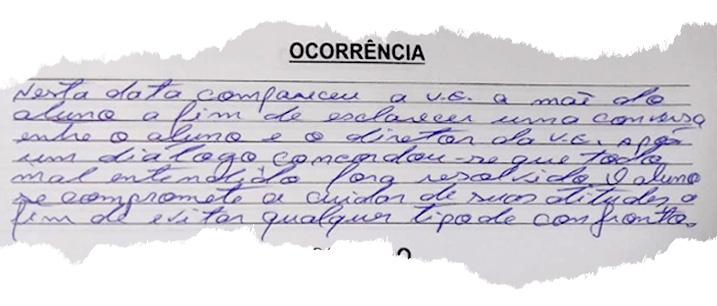 OCORRÊNCIA
Nesta data compareceu a U.E. a mãe do
aluno a fim de esclarecer uma conversa
entre o aluno e o diretor da U.E. após
um diálogo concordou-se que todo
mal entendido fora resolvido. O aluno
se compromete a cuidar de suas atitudes a
fim de evitar qualquer tipo de confronto.